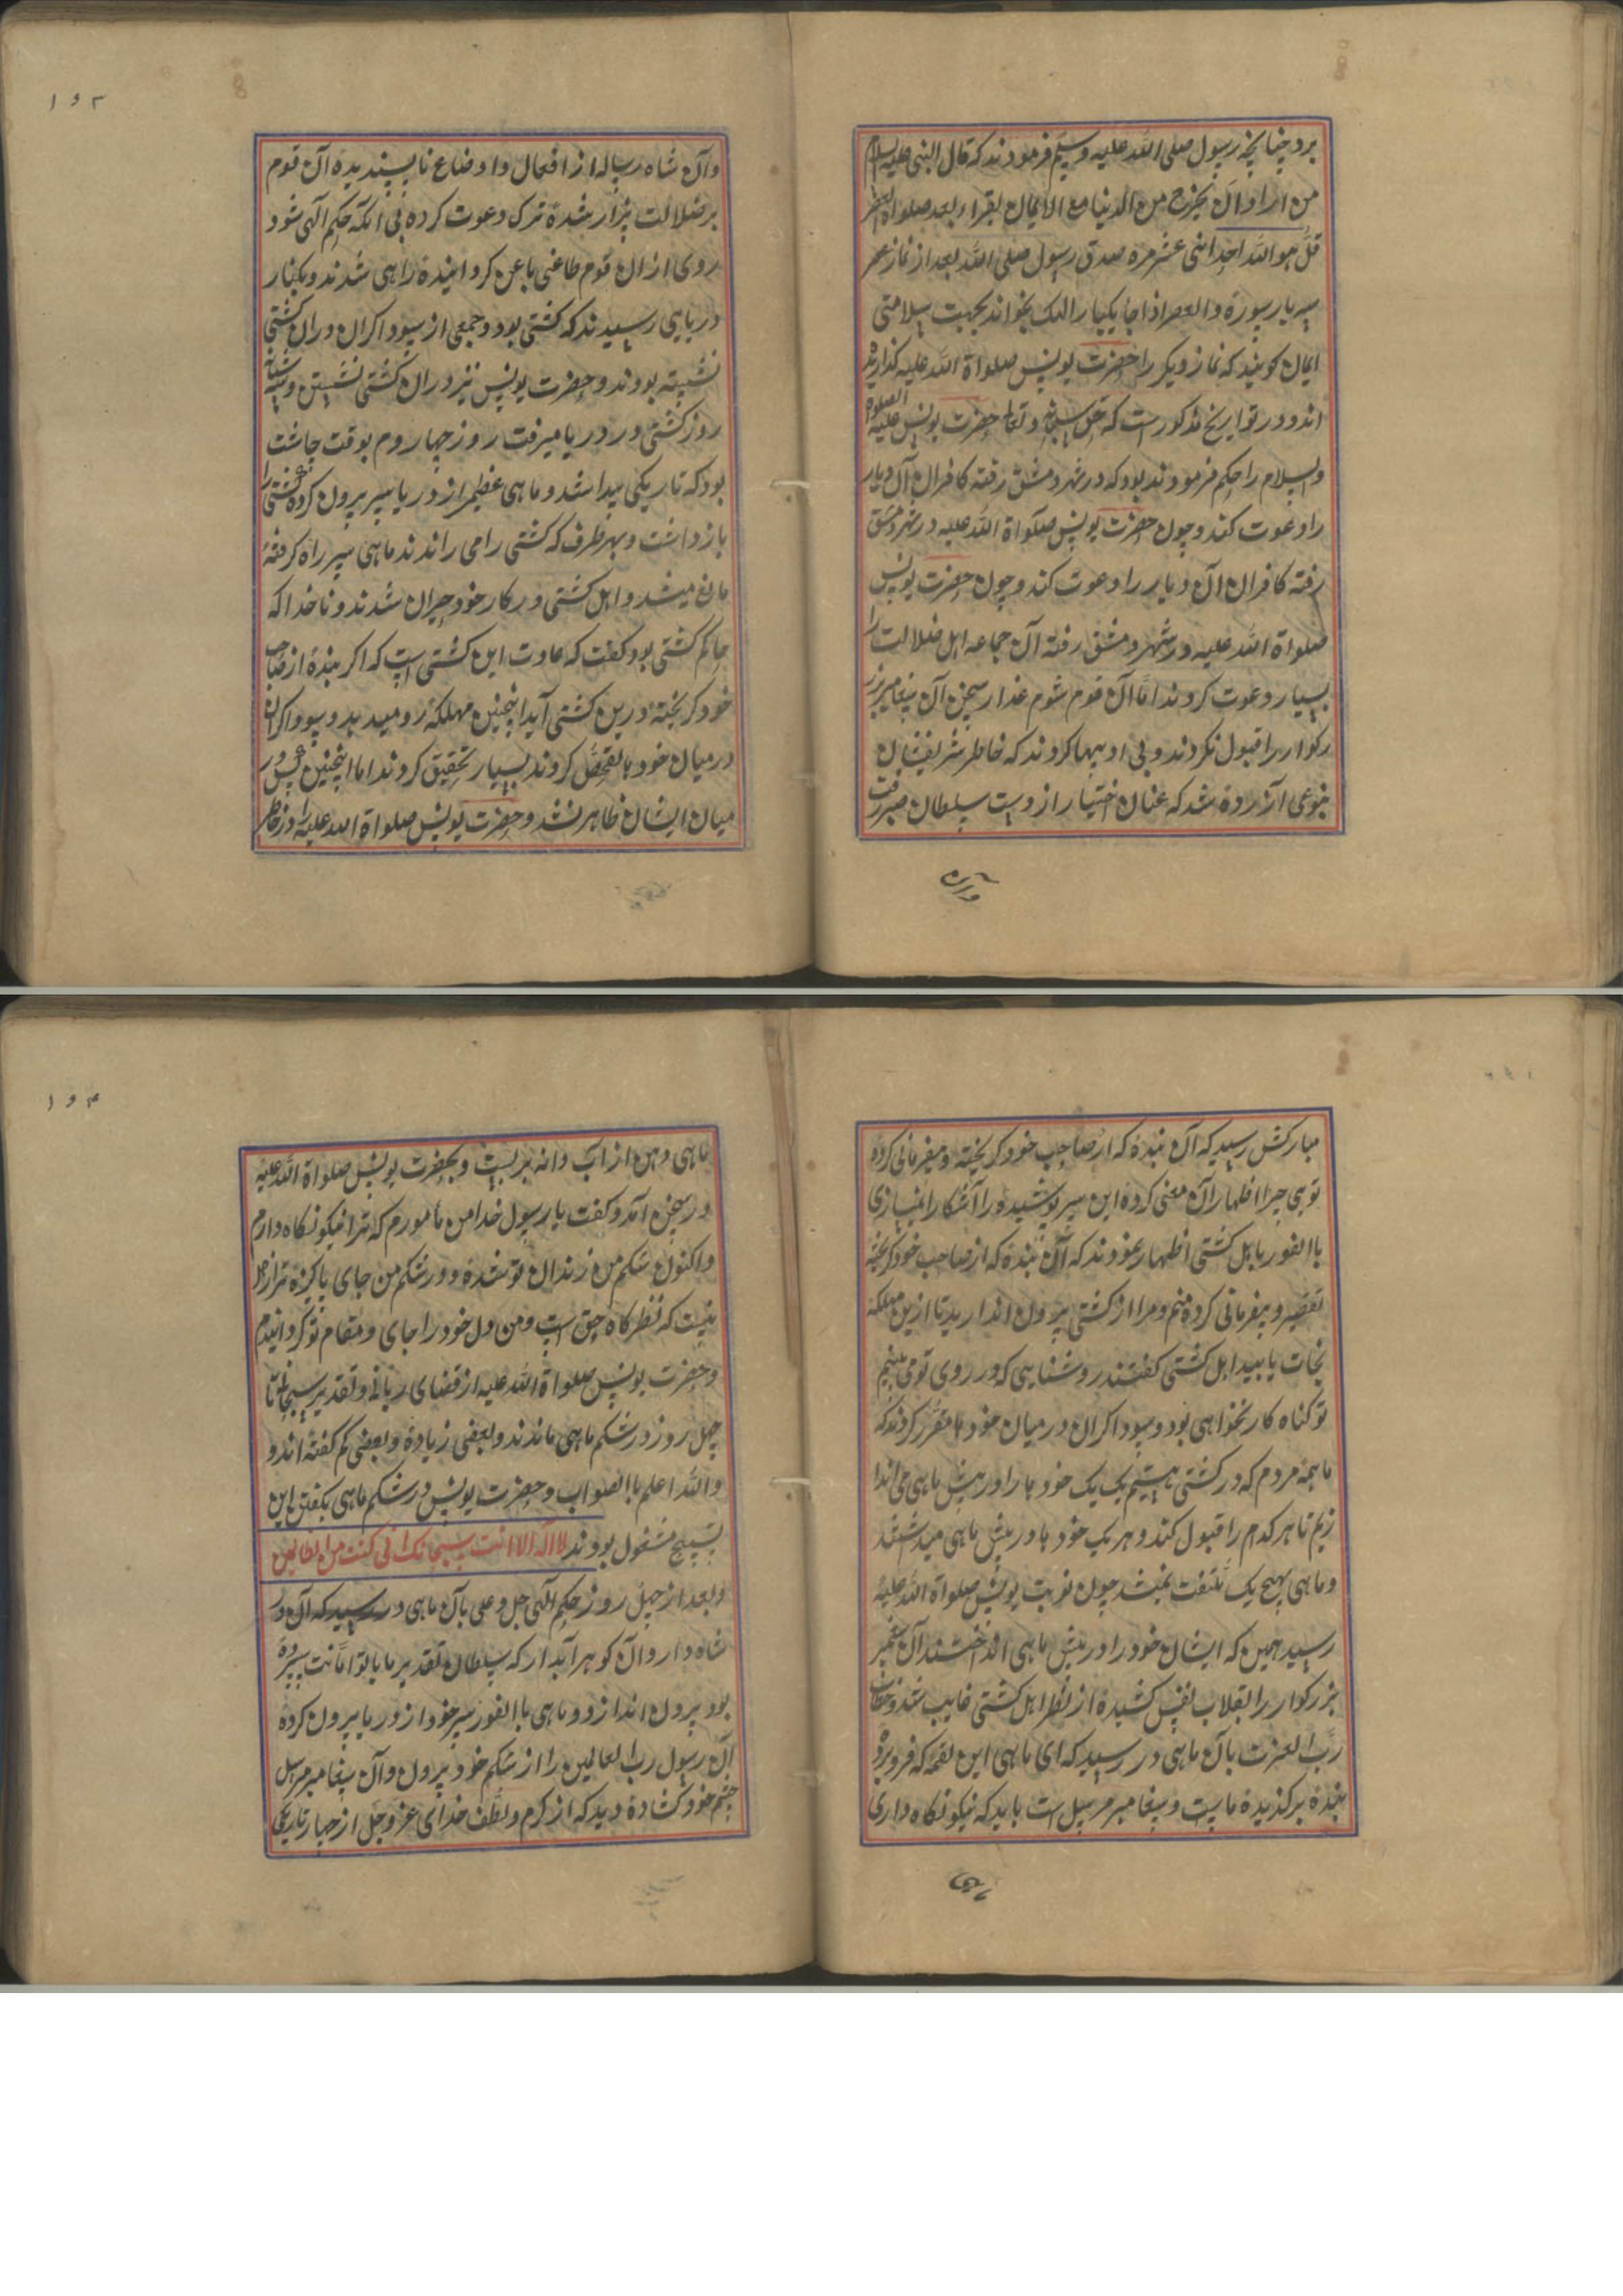 برد چنانچه رسول صلی الله علیه وسلم فرمودند که قال النبی علیه السلام
من اراد ان یخرج من الدنیا مع الایمان یقراء بعد صلواة العصر
قل هو الله احد اثنی عشر مره صدق رسول صلی الله بعد از نماز عصر
سر بار سورة والعصر اذا جا یکبار الهک بخواند بجهت سلامتی
ایمان کویند که نماز دیکر را حضرت یونس صلواة الله علیه کذارده
اند و در تواریخ مذکورست که حق سبحانه و تعالی حضرت یونس علیه الصلوة
والسلام را حکم فرمودند بود که در شهر دمشق رفته کافران آن دیار
را دعوت کند و چون حضرت یونس صلواة الله علیه در شهر دمشق
رفته کافران آن دیار را دعوت کند و چون حضرت یونس
صلواة الله علیه در شهر دمشق رفته آن جماعه اهل ضلالت را
بسیار دعوت کردند اما آن قوم شوم غدار سخن آن پیغامبر بز
رکوار را قبول نکردند و بی ادبیها کردند که خاطر شریفشان
بنوعی آزرده شد که عنان اختیار از دست سلطان صبر رفت
۱۵۳
وآن شاه رساله از افعال و اوضاع ناپسندیده آن قوم
بر ضلالت بیزار شده ترک دعوت کرده بی آنکه حکم آلهی شود
روی از آن قوم طاغی باعن کردانیده راهی شدند و بکنار
دریایی رسیدند که کشتی بود و جمعی از سوداکران در آن کشتی
نشسته بودند و حضرت یونس نیز در آن کشتی نشستن و سه شبانه
روز کشتی در دریا میرفت روز چهاروم بوقت چاشت
بود که تاریکی پیدا شد و ماهی عظیم از دریا سر بیرون کرده کشتی را
باز داشت و بهر طرف که کشتی را می راندند ماهی سر راه کرفته
مانع میشد و اهل کشتی در کار خود حیران شدند و ناخدا که
حاکم کشتی بود کفت که عادت این کشتی است که اکر بنده از صاحب
خود کریخته درین کشتی آید اینچنین مهلکه رو میدهد و سوداکران
در میان خود با تفحص کردند بسیار تحقیق کردند اما اینچنین کس در
میان ایشان ظاهر نشد و حضرت یونس صلواة الله علیه را در خاطر
مبارکش رسید که آن بنده که از صاحب خود کریخته و بیفرمانی کرده
توبی چرا اظهار آن معنی کرده این سر پوشیده را آشکارا نمیسازی
باالفور باهل کشتی اظهار نمودند که آن بنده که از صاحب خود کریخته
تقصیر و بیفرمانی کرده منم و مرا از کشتی بیرون اندازید تا ازین مهلکه
نجات یابید اهل کشتی کفتند روشنایی که در روی تو می بینیم
تو کناه کار نخواهی بود و سوداکران در میان خود ها مقرر کردند که
ما همه مردم که در کشتی هستیم یک یک خود را در پیش ماهی می اندا
زیم تا هر کدام را قبول کند و هر یک خود را در پیش ماهی میداشتند
و ماهی بهیچ یک ملتفت نمیشد چون نوبت یونس صلواة الله علیه
رسید همین که ایشان خود را در پیش ماهی انداختند آن پیغمبر
بزرکوار را بقلاب نفس کشیده از نظر اهل کشتی غایب شد و خطاب
رب العزت بآن ماهی در رسید که ای ماهی این لقمه که فرو برده
بنده برکذیدهٔ ماست و پیغامبر مرسل است باید که نیکو نکاه داری
۱۵۴
ماهی دهن از آب و دانه بر بست و بحضرت یونس صلواة الله علیه
در سخن آمد و کفت یا رسول خدا من مأمورم که ترا نیکو نکاه دارم
و اکنون شکم من زندان تو شده و در شکم من جای پاکیزه تر از دل
نیست که نظرکاه حق است و من دل خود را جای و مقام تو کردانیدم
و حضرت یونس صلواة الله علیه از قضای ربانی و تقدیر سبحانی تا
چهل روز در شکم ماهی ماندند و بعضی زیاده و بعضی کم کفته اند و
والله اعلم باالصواب و حضرت یونس در شکم ماهی بکفتن این
تسبیح مشغول بودند لا اله الا انت سبحانک انی کنت من الظالمین
و بعد از چهل روز حکم آلهی جل و علی بآن ماهی در رسید که آن در
شاه دار و آن کوهر آبدار که سلطان تقدیر ما بتو امانت سپرده
بود بیرون انداز و ماهی باالفور سر خود از دریا بیرون کرده
آن رسول رب العالمین را از شکم خود بیرون و آن پیغامبر مرسل
چشم خود کشاده دید که از کرم و لطف خدای عز و جل از چهار تاریکی